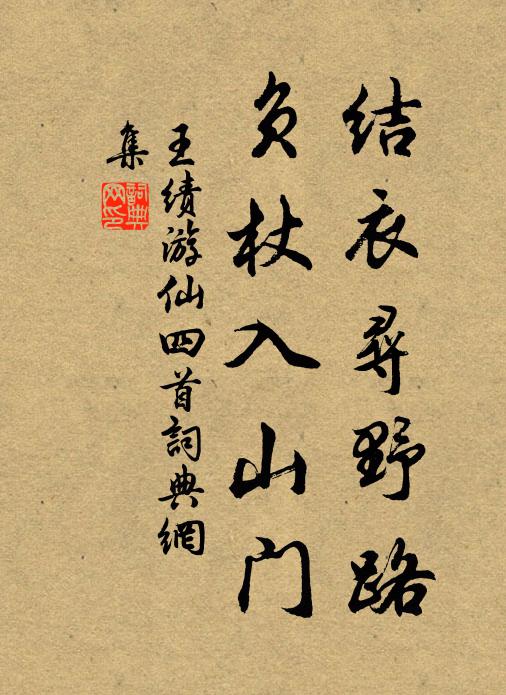 结衣尋野路
负杖入山门
王绩游仙四首詞典網
集
詞典網印